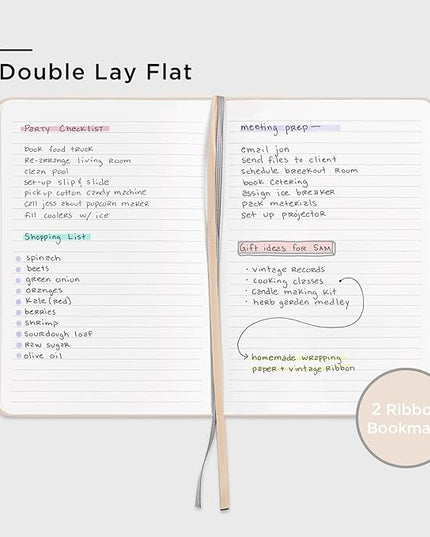 Double Lay Flat
Party Checklist
book food truck
Re-arrange living room
clean pool
set-up slip & slide
pickup cotton candy machine
call jess about popcorn maker
fill coolers w/ ice
Shopping List
spinach
beets
green onion
oranges
Kale (red)
berries
shrimp
sourdough loaf
Raw sugar
olive oil
meeting prep —
email jon
send files to client
schedule breakout room
book catering
assign ice breaker
pack materials
set up projector
Gift ideas for SAM
• vintage records
• cooking classes
• candle making kit
• herb garden medley
homemade wrapping
paper + vintage ribbon
2 Ribbo
Bookma